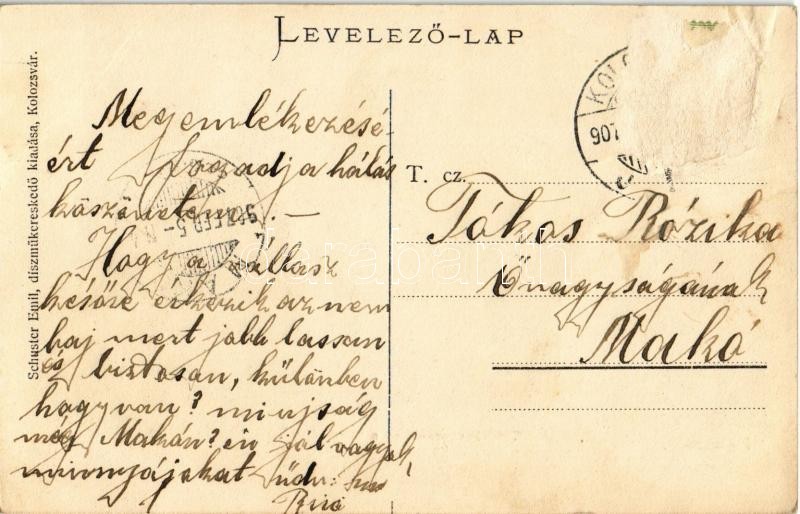 LEVELEZŐ-LAP
Schuster Emil, díszműkereskedő kiadása, Kolozsvár.
Megemlékezésé-
ért fogadja hálás
köszönetem. —
Hogy a válasz
későre érkezik az nem
baj mert jobb lassan
és biztosan, különben
hogy van? mi ujság
még Makón? én jól vagyok,
mindnyájokat üdv:
KOLO
906 FEB 5
T. cz.
Tákos Rózika
Őnagyságának
Makó